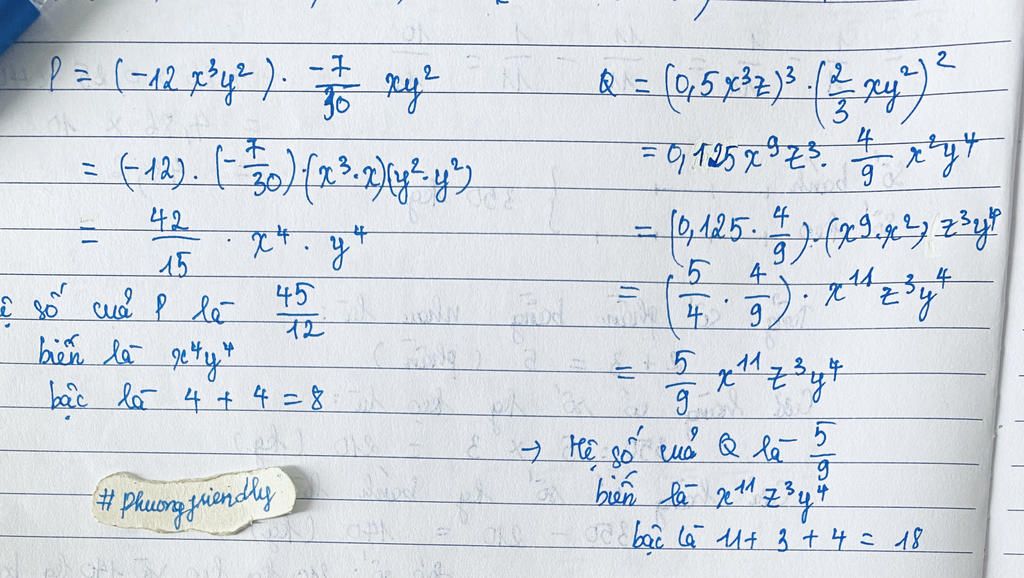 P = (-12 x³y²) · -7/30 xy²
= (-12) · (-7/30) · (x³·x)(y²·y²)
= 42/15 · x⁴ · y⁴
ệ số cuả P là 45/12
biến là x⁴y⁴
bậc là 4 + 4 = 8
#phuongfriendly
Q = (0,5x³z)³ · (2/3 xy²)²
= 0,125x⁹z³ · 4/9 x²y⁴
= (0,125 · 4/9) · (x⁹·x²) z³y⁴
= (5/4 · 4/9) · x¹¹z³y⁴
= 5/9 x¹¹z³y⁴
→ Hệ số cuả Q là 5/9
biến là x¹¹z³y⁴
bậc là 11 + 3 + 4 = 18